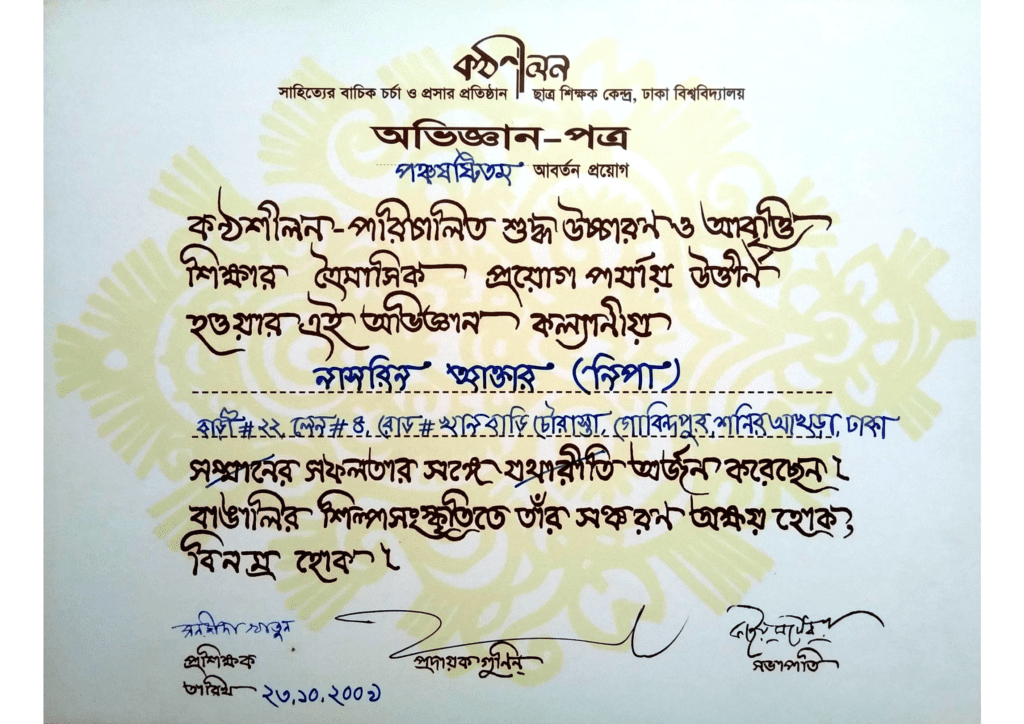 কণ্ঠশীলন
সাহিত্যের বাচিক চর্চা ও প্রসার প্রতিষ্ঠান ছাত্র শিক্ষক কেন্দ্র, ঢাকা বিশ্ববিদ্যালয়
অভিজ্ঞান-পত্র
পঞ্চষষ্টিতম আবর্তন প্রয়োগ
কন্ঠশীলন-পরিচালিত শুদ্ধ উচ্চারণ ও আবৃত্তি
শিক্ষার ত্রৈমাসিক প্রয়োগ পর্যায় উত্তীর্ণ
হওয়ার এই অভিজ্ঞান কল্যাণীয়
নাসরিন আক্তার (নিপা)
বাড়ী # ২২, লেন # ৪, রোড # খান বাড়ি চৌরাস্তা, গোবিন্দপুর, শনির আখড়া, ঢাকা
সম্মানের সফলতার সঙ্গে যথারীতি অর্জন করেছেন।
বাঙালির শিল্পসংস্কৃতিতে তাঁর সঞ্চরণ অক্ষয় হোক,
বিনম্র হোক।
প্রশিক্ষক
প্রদায়ক গুণিন্
সভাপতি
তারিখ ২৩.১০.২০০৯